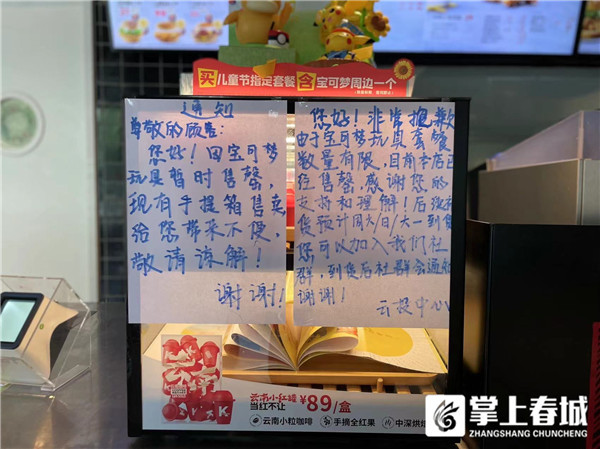 买儿童节指定套餐含宝可梦周边一个
通知
尊敬的顾客:
您好!因宝可梦
玩具暂时售罄,
现有手提箱售卖
给您带来不便,
敬请谅解!
谢谢!
您好!非常抱歉
由于宝可梦玩具套餐
数量有限,目前本店已
经售罄,感谢您的
支持和理解!后续
货预计周六/日/一到货
您可以加入我们社
群,到货后社群会通知
谢谢!
云投中心
云南小红罐
当红不让
¥89/盒
云南小粒咖啡
手摘全红果
中深烘焙
掌上春城
ZHANGSHANG CHUNCHENG